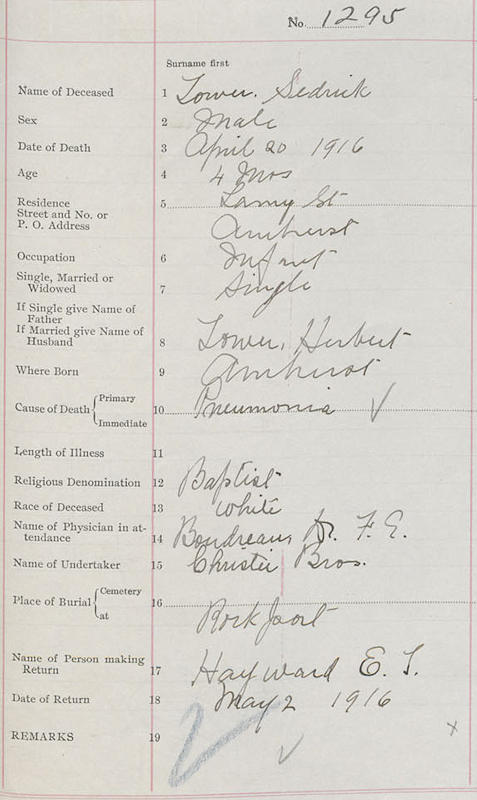 No. 1295
Surname first
Name of Deceased 1 Tower. Sedrick
Sex 2 Male
Date of Death 3 April 20 1916
Age 4 4 Mos
Residence
Street and No. or
P. O. Address 5 Lamy St
Amherst
Occupation 6 Infant
Single, Married or
Widowed 7 Single
If Single give Name of
Father
If Married give Name of
Husband 8 Tower, Herbert
Where Born 9 Amherst
Cause of Death { Primary
Immediate 10 Pneumonia ✓
Length of Illness 11
Religious Denomination 12 Baptist
Race of Deceased 13 White
Name of Physician in at-
tendance 14 Boudreau, Dr. F. E.
Name of Undertaker 15 Christie Bros.
Place of Burial { Cemetery
at 16
Rockport
Name of Person making
Return 17 Hayward E. T.
Date of Return 18 May 2 1916
REMARKS 19